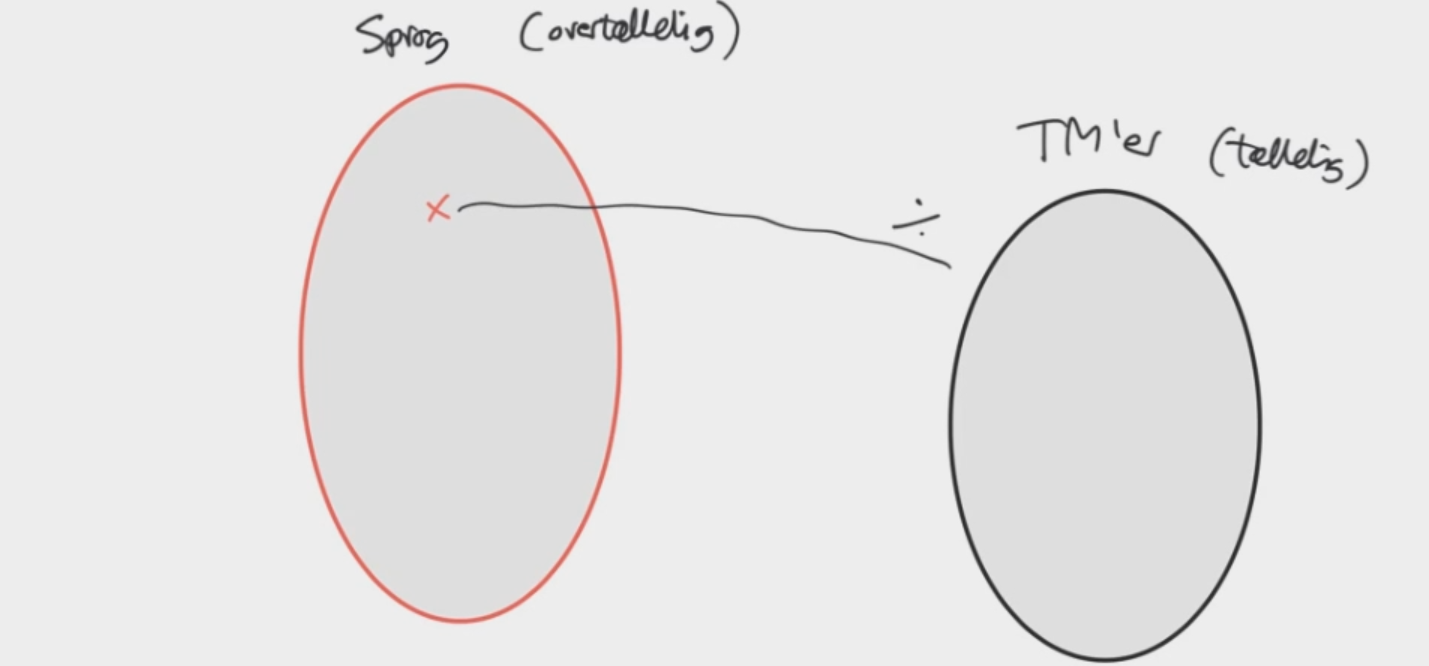 Sprog (overtællelig)
TM'er (tællelig)
÷